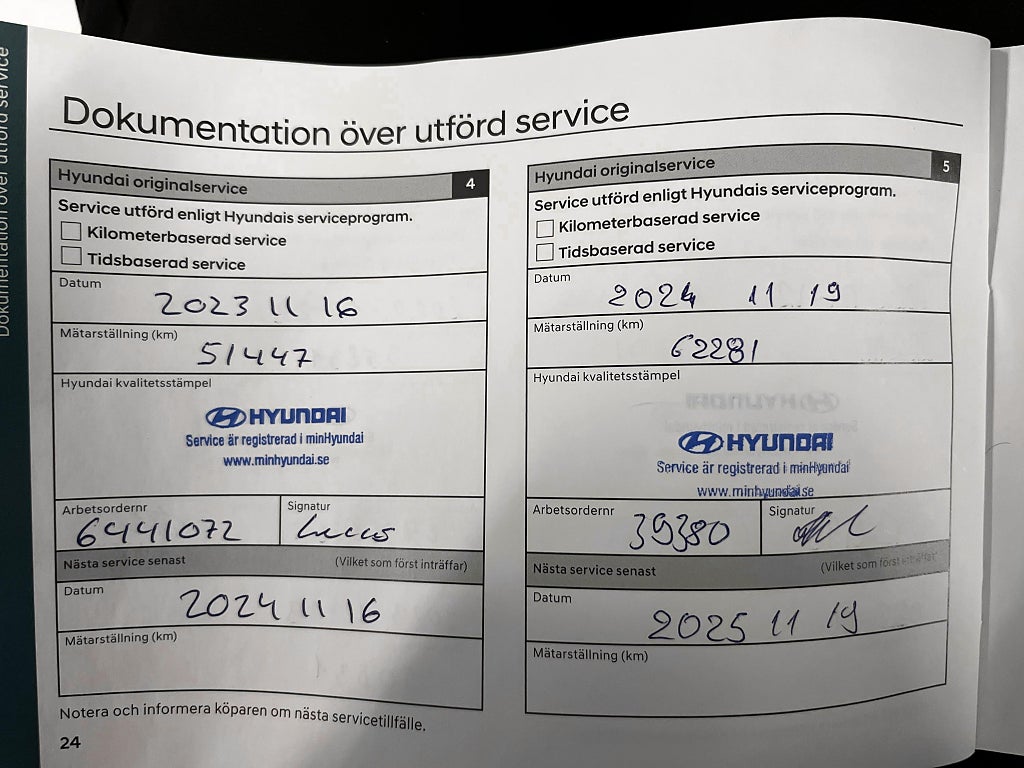 Dokumentation över utförd service
Dokumentation över utförd service
Hyundai originalservice 4
Service utförd enligt Hyundais serviceprogram.
Kilometerbaserad service
Tidsbaserad service
Datum
2023 11 16
Mätarställning (km)
51447
Hyundai kvalitetsstämpel
HYUNDAI
Service är registrerad i minHyundai
www.minhyundai.se
Arbetsordernr
6441072
Signatur
Nästa service senast (Vilket som först inträffar)
Datum
2024 11 16
Mätarställning (km)
Hyundai originalservice 5
Service utförd enligt Hyundais serviceprogram.
Kilometerbaserad service
Tidsbaserad service
Datum
2024 11 19
Mätarställning (km)
62281
Hyundai kvalitetsstämpel
HYUNDAI
Service är registrerad i minHyundai
www.minhyundai.se
Arbetsordernr
39380
Signatur
Nästa service senast (Vilket som först inträffar)
Datum
2025 11 19
Mätarställning (km)
Notera och informera köparen om nästa servicetillfälle.
24